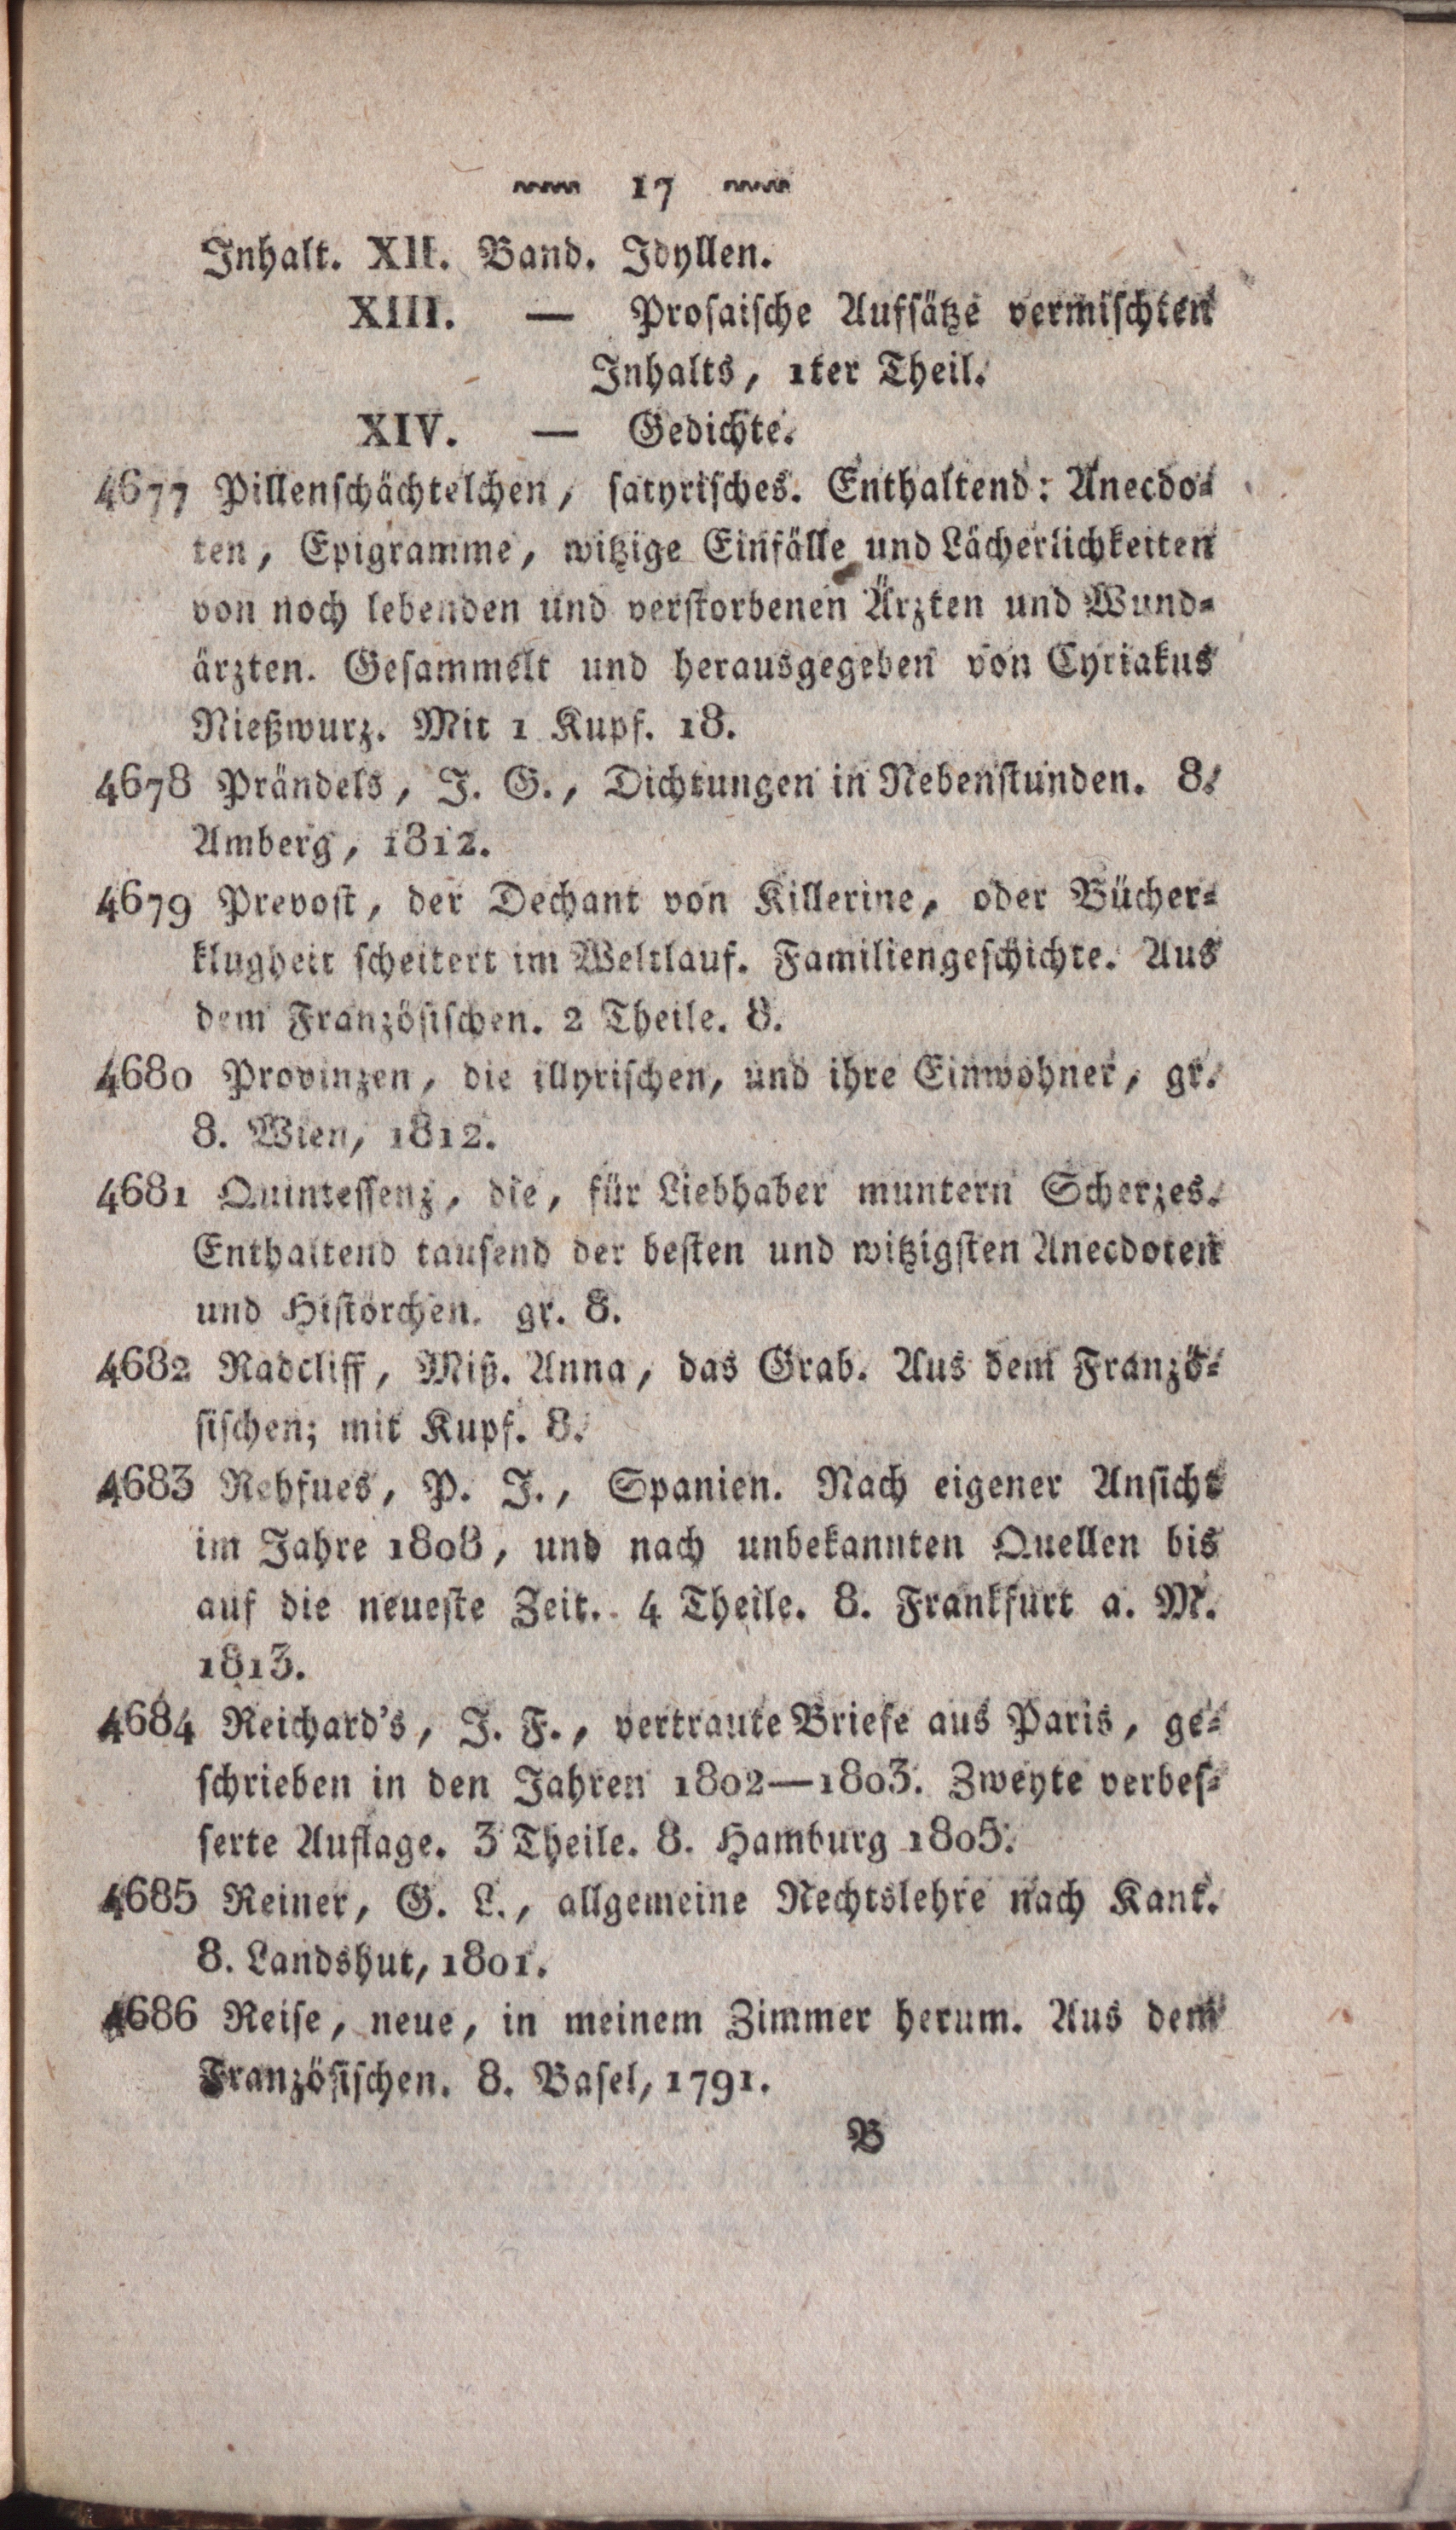 17
Inhalt. XII. Band. Idyllen.
XIII. — Prosaische Aufsätze vermischten
Inhalts, 1ter Theil.
XIV. — Gedichte.
4677 Pillenschächtelchen, satyrisches. Enthaltend: Anecdo-
ten, Epigramme, witzige Einfälle und Lächerlichkeiten
von noch lebenden und verstorbenen Ärzten und Wund-
ärzten. Gesammelt und herausgegeben von Cyriakus
Nießwurz. Mit 1 Kupf. 18.
4678 Prändels, J. G., Dichtungen in Nebenstunden. 8.
Amberg, 1812.
4679 Prevost, der Dechant von Killerine, oder Bücher-
klugheit scheitert im Weltlauf. Familiengeschichte. Aus
dem Französischen. 2 Theile. 8.
4680 Provinzen, die illyrischen, und ihre Einwohner, gr.
8. Wien, 1812.
4681 Quintessenz, die, für Liebhaber muntern Scherzes.
Enthaltend tausend der besten und witzigsten Anecdoten
und Histörchen. gr. 8.
4682 Radcliff, Miß. Anna, das Grab. Aus dem Franzö-
sischen; mit Kupf. 8.
4683 Rehfues, P. J., Spanien. Nach eigener Ansicht
im Jahre 1808, und nach unbekannten Quellen bis
auf die neueste Zeit. 4 Theile. 8. Frankfurt a. M.
1813.
4684 Reichard's, J. F., vertraute Briefe aus Paris, ge-
schrieben in den Jahren 1802—1803. Zweyte verbes-
serte Auflage. 3 Theile. 8. Hamburg 1805.
4685 Reiner, G. L., allgemeine Rechtslehre nach Kant.
8. Landshut, 1801.
4686 Reise, neue, in meinem Zimmer herum. Aus dem
Französischen. 8. Basel, 1791.
B